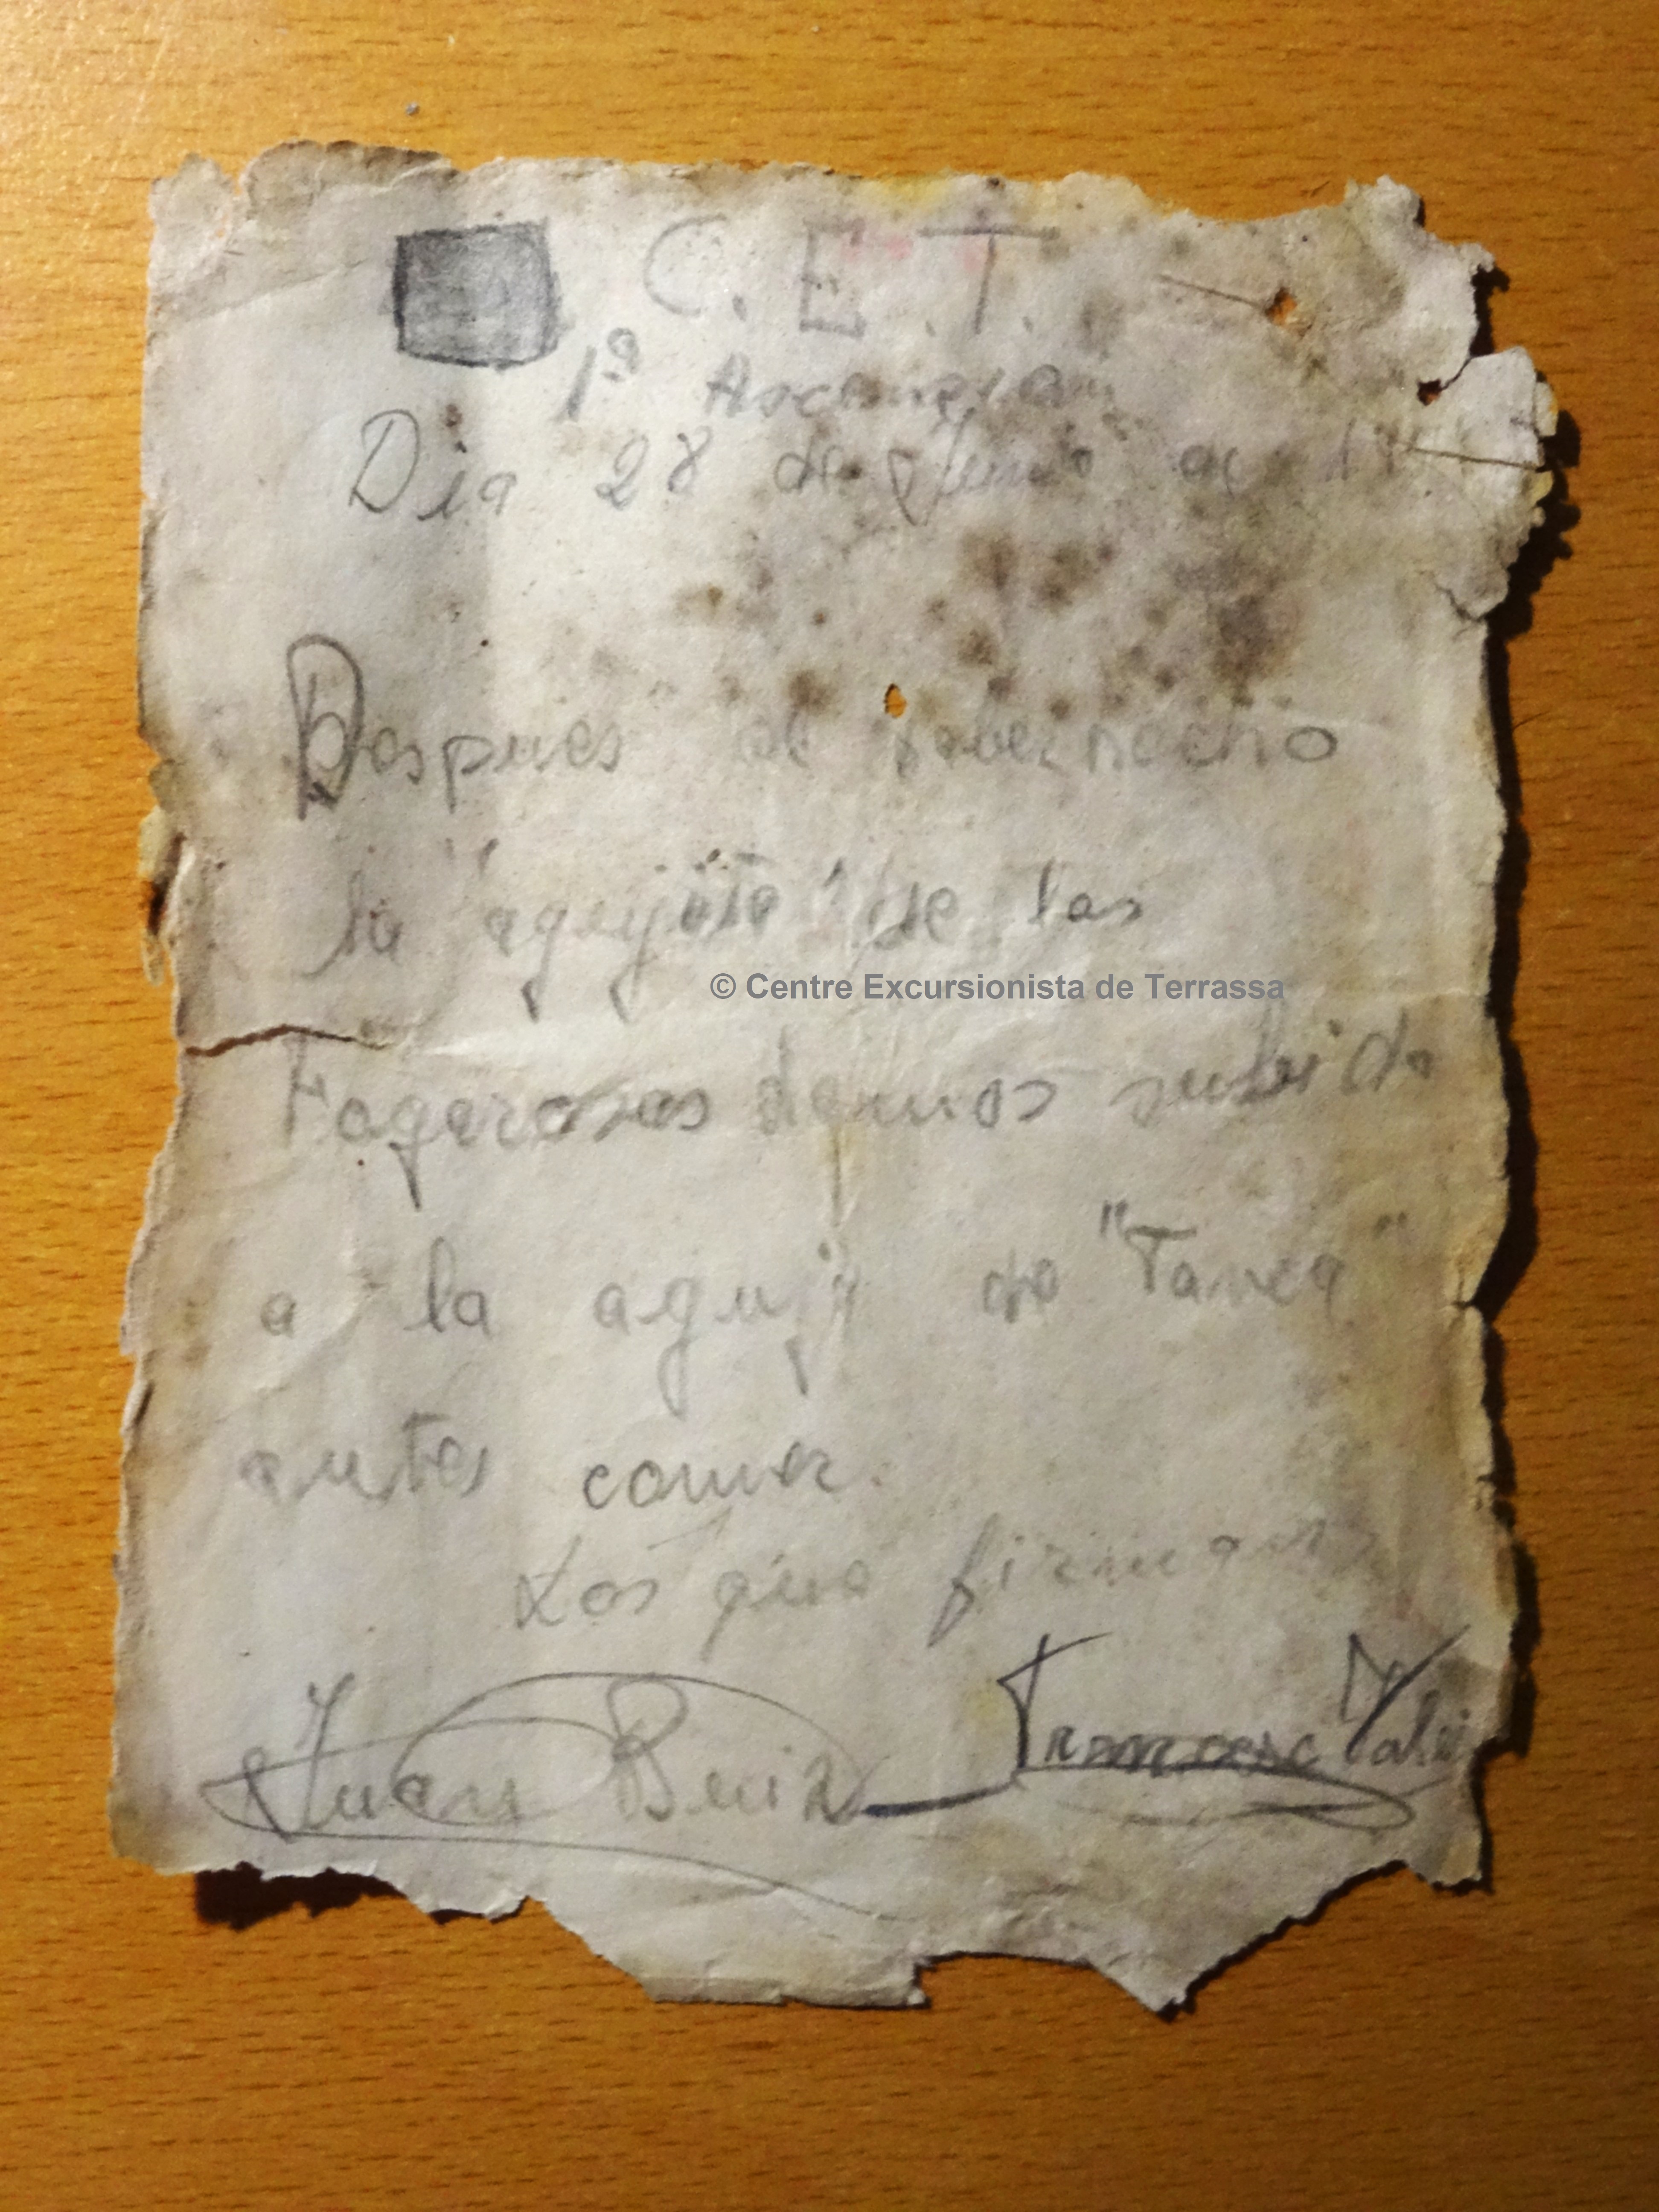 C. E. T.
1ª Ascension
Dia 28 de Junio
Despues de haber hecho
la "agujeta" de las
Fogerosas hemos subido
© Centre Excursionista de Terrassa
a la aguja de "Tanca"
antes comer.
Los que firman
Juan Ruiz Francesc